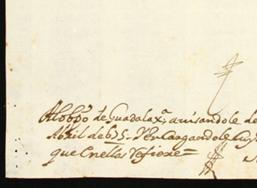 Al obpo de Guadalaxa avisandole de
Abril de 675. Y Encargandole
que En ella Refiere =